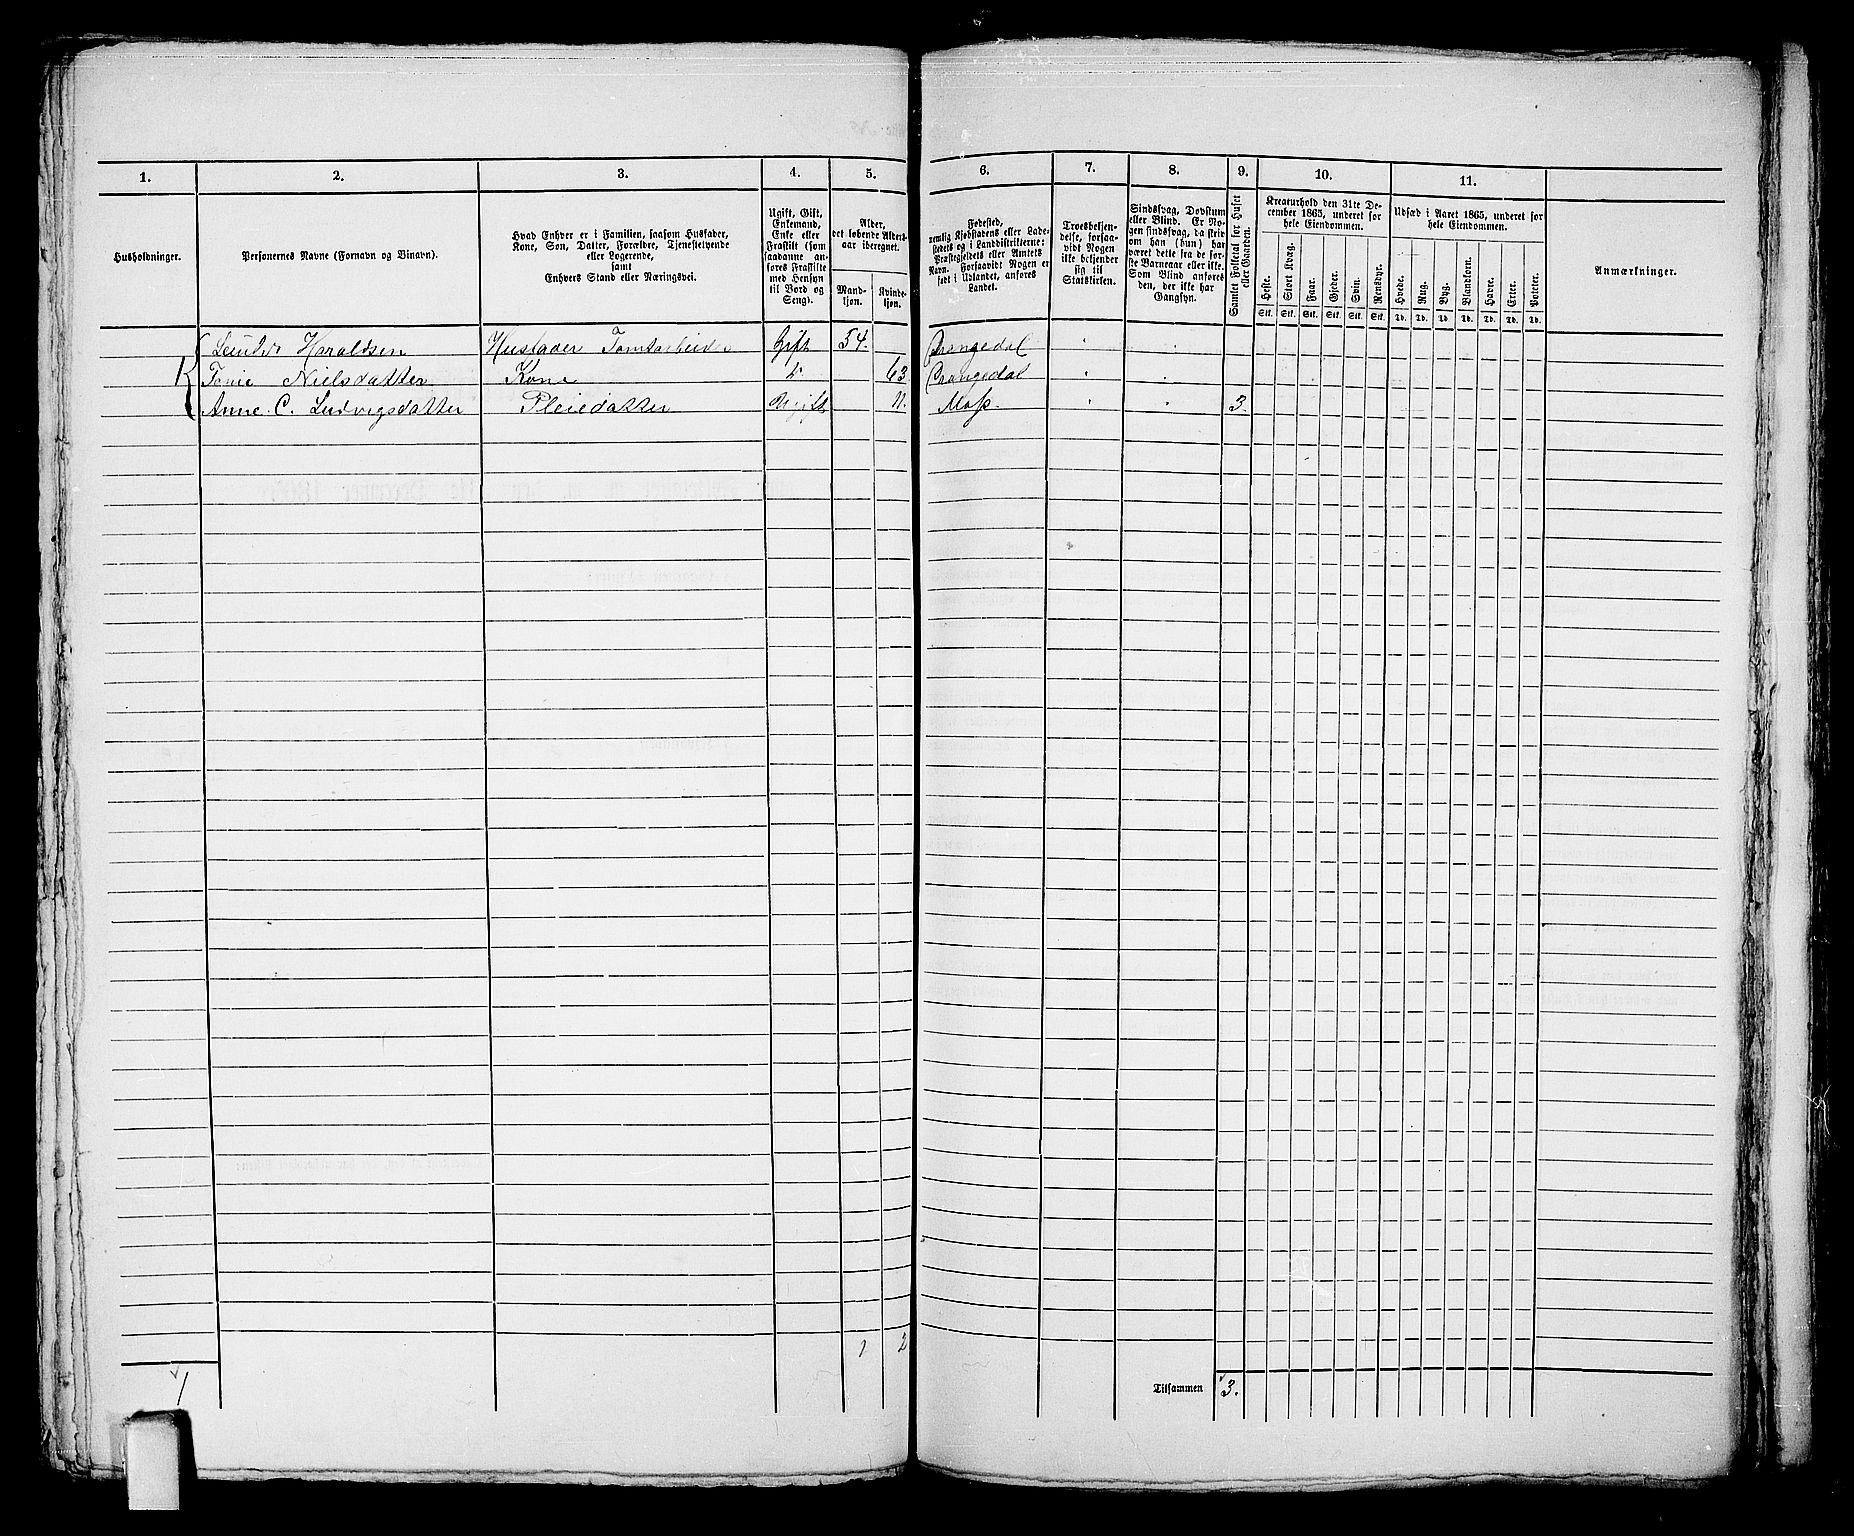 1. 2. 3. 4. 5. 6. 7. 8. 9. 10. 11.
Husholdninger.
Personernes Navne (Fornavn og Binavn).
Hvad Enhver er i Familien, saasom Husfader,
Kone, Søn, Datter, Forældre, Tjenestetyende
eller Logerende,
samt
Enhvers Stand eller Næringsvei.
Ugift, Gift,
Enkemand,
Enke eller
Fraskilt (som
saadanne an-
føres Fraskilte
med Hensyn
til Bord og
Seng).
Alder,
det løbende Alders-
aar iberegnet.
Mand-
kjøn.
Kvinde-
kjøn.
Fødested,
nemlig Kjøbstadens eller Lade-
stedets og i Landdistrikterne:
Præstegjeldets eller Amtets
Navn. Forsaavidt Nogen er
født i Udlandet, anføres
Landet.
Troesbekjen-
delse, forsaa-
vidt Nogen
ikke bekjender
sig til
Statskirken.
Sindssvag, Døvstum
eller Blind. Er No-
gen sindssvag, da skriv
om han (hun) har
været dette fra de før-
ste Barneaar eller ikke.
Som Blind ansføres
den, der ikke har
Gangsyn.
Samlet Folketal for Huset
eller Gaarden.
Kreaturhold den 31te De-
cember 1865, underet for
hele Eiendommen.
Heste. Stort Kvæg. Faar. Gjeder. Svin. Rensdyr.
Stk. Stk. Stk. Stk. Stk. Stk.
Udsæd i Aaret 1865, underet for
hele Eiendommen.
Hvede. Rug. Byg. Blandkorn. Havre. Erter. Poteter.
Td. Td. Td. Td. Td. Td. Td.
Anmærkninger.
Haraldsen Husfader Tomtarbeider Gift 54. Drangedal
Nielsdatter Kone 63 Drangedal
Anne C. Ludvigsdatter Pleiedatter Ugift 11. Moss. 3.
1 2
1
Tilsammen 3.